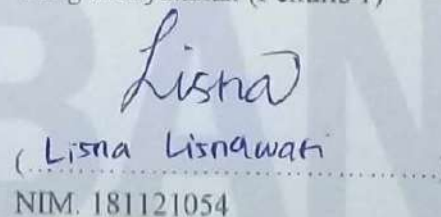 Lisna
( Lisna Lisnawati
NIM. 181121054